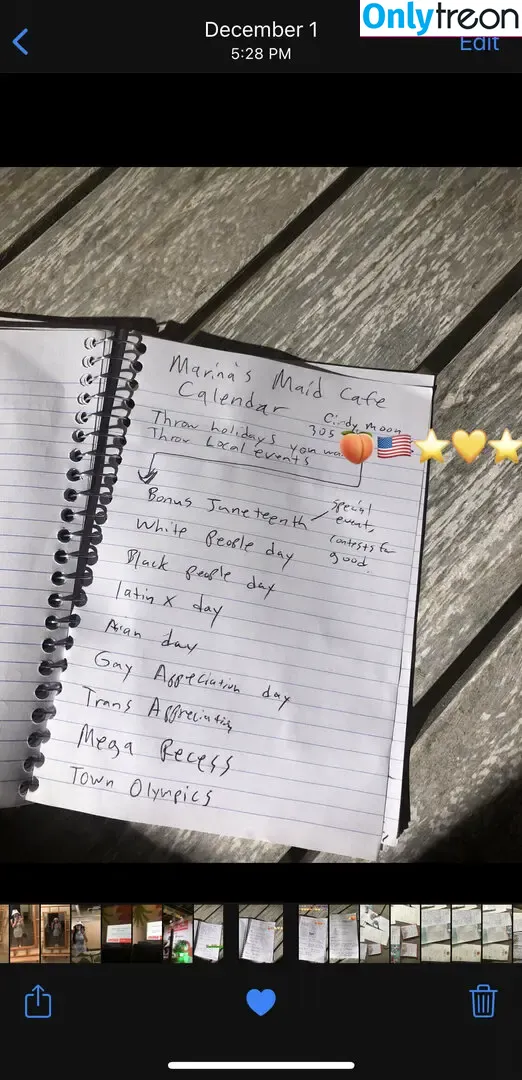 December 1
5:28 PM
Onlytreon
Edit
Marina's Maid Cafe
Calendar
Cindy Moon
305
Throw holidays you
Throw Local events
Bonus Juneteenth
special
event,
contests for
good.
White People day
Black people day
latin x day
Asian day
Gay Appreciation day
Trans Appreciation
Mega Recess
Town Olympics